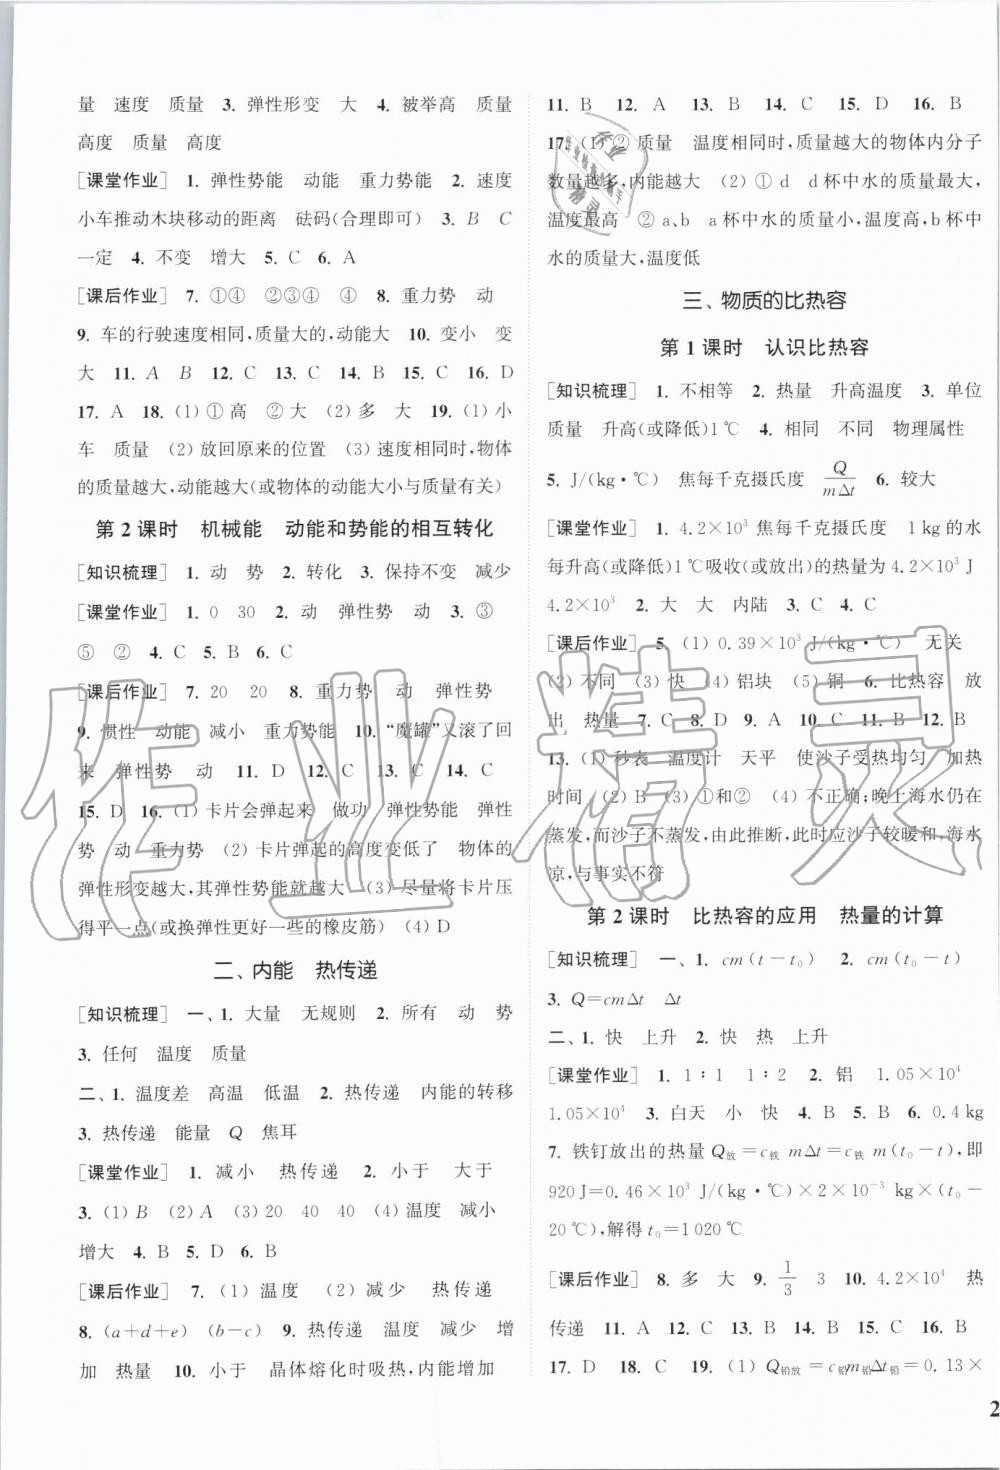 量　速度　质量　3. 弹性形变　大　4. 被举高　质量
高度　质量　高度
[课堂作业]　1. 弹性势能　动能　重力势能　2. 速度
小车推动木块移动的距离　砝码(合理即可)　3. B　C
一定　4. 不变　增大　5. C　6. A
[课后作业]　7. ①④　②③④　④　8. 重力势　动
9. 车的行驶速度相同,质量大的,动能大　10. 变小　变
大　11. A　B　12. C　13. C　14. C　15. C　16. D
17. A　18. (1) ①高　②大　(2) 多　大　19. (1) 小
车　质量　(2) 放回原来的位置　(3) 速度相同时,物体
的质量越大,动能越大(或物体的动能大小与质量有关)
第 2 课时　机械能　动能和势能的相互转化
[知识梳理]　1. 动　势　2. 转化　3. 保持不变　减少
[课堂作业]　1. 0　30　2. 动　弹性势　动　3. ③
⑤　②　4. C　5. B　6. C
[课后作业]　7. 20　20　8. 重力势　动　弹性势
9. 惯性　动能　减小　重力势能　10. “魔罐”又滚了回
来　弹性势　动　11. D　12. C　13. C　14. C
15. D　16. (1) 卡片会弹起来　做功　弹性势能　弹性
势　动　重力势　(2) 卡片弹起的高度变低了　物体的
弹性形变越大,其弹性势能就越大　(3) 尽量将卡片压
得平一点(或换弹性更好一些的橡皮筋)　(4) D
二、内能　热传递
[知识梳理]　一、1. 大量　无规则　2. 所有　动　势
3. 任何　温度　质量
二、1. 温度差　高温　低温　2. 热传递　内能的转移
3. 热传递　能量　Q　焦耳
[课堂作业]　1. 减小　热传递　2. 小于　大于
3. (1) B　(2) A　(3) 20　40　40　(4) 温度　减小
增大　4. B　5. D　6. B
[课后作业]　7. (1) 温度　(2) 减少　热传递
8. (a+d+e)　(b-c)　9. 热传递　温度　减少　增
加　热量　10. 小于　晶体熔化时吸热,内能增加
11. B　12. A　13. B　14. C　15. D　16. B
17. (1) ② 质量　温度相同时,质量越大的物体内分子
数量越多,内能越大　(2) ① d　d杯中水的质量最大,
温度最高　② a、b　a杯中水的质量小,温度高,b杯中
水的质量大,温度低
三、物质的比热容
第 1 课时　认识比热容
[知识梳理]　1. 不相等　2. 热量　升高温度　3. 单位
质量　升高(或降低)1 ℃　4. 相同　不同　物理属性
5. J/(kg·℃)　焦每千克摄氏度　Q/(mΔt)　6. 较大
[课堂作业]　1. 4.2×10³ 焦每千克摄氏度　1 kg的水
每升高(或降低)1 ℃吸收(或放出)的热量为4.2×10³ J
4.2×10³　2. 大　大　内陆　3. C　4. C
[课后作业]　5. (1) 0.39×10³ J/(kg·℃)　无关
(2) 不同　(3) 快　(4) 铝块　(5) 铜　6. 比热容　放
出　热量　7. C　8. D　9. A　10. C　11. B　12. B
13. (1) 秒表　温度计　天平　使沙子受热均匀　加热
时间　(2) B　(3) ①和②　(4) 不正确;晚上海水仍在
蒸发,而沙子不蒸发,由此推断,此时应沙子较暖和,海水
凉,与事实不符
第 2 课时　比热容的应用　热量的计算
[知识梳理]　一、1. cm(t-t₀)　2. cm(t₀-t)
3. Q=cmΔt　Δt
二、1. 快　上升　2. 快　热　上升
[课堂作业]　1. 1∶1　1∶2　2. 铝　1.05×10⁴
1.05×10⁴　3. 白天　小　快　4. B　5. B　6. 0.4 kg
7. 铁钉放出的热量 Q放=c铁 mΔt=c铁 m(t₀-t),即
920 J=0.46×10³ J/(kg·℃)×2×10⁻³ kg×(t₀-
20 ℃),解得 t₀=1 020 ℃
[课后作业]　8. 多　大　9. 1/3　3　10. 4.2×10⁴　热
传递　11. A　12. A　13. C　14. C　15. C　16. B
17. D　18. C　19. (1) Q铅放=c铅m铅Δt铅=0.13×
2
作业精灵